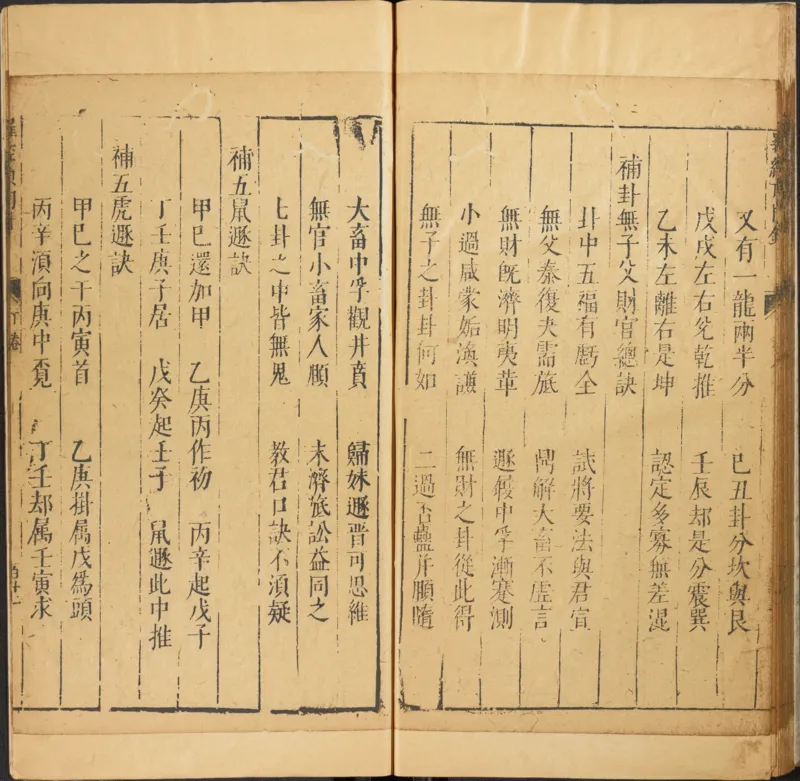 又有一龍兩半分 巳丑卦分坎與艮
戊戌左右兌乾推 壬辰却是分震巽
乙未左離右是坤 認定多寡無差混
補卦無子父財官總訣
卦中五福有虧全 試將要法與君宣
無父泰復夬需旅 鬲解大畜不虛言
無財旣濟明夷革 遯䷀中孚漸蹇測
小過咸蒙姤渙謙 無財之卦從此得
無子之卦卦何如 二過否蠱并頤隨
大畜中孚觀井賁 歸妹遯晋可思維
無官小畜家人頤 未濟旅訟益同之
七卦之中皆無鬼 教君口訣不須疑
補五鼠遯訣
甲巳還加甲 乙庚丙作初 丙辛起戊子
丁壬庚子居 戊癸起壬子 鼠遯此中推
補五虎遯訣
甲巳之干丙寅首 乙庚掛属戊爲頭
丙辛湏向庚中覓 丁壬却属壬寅求